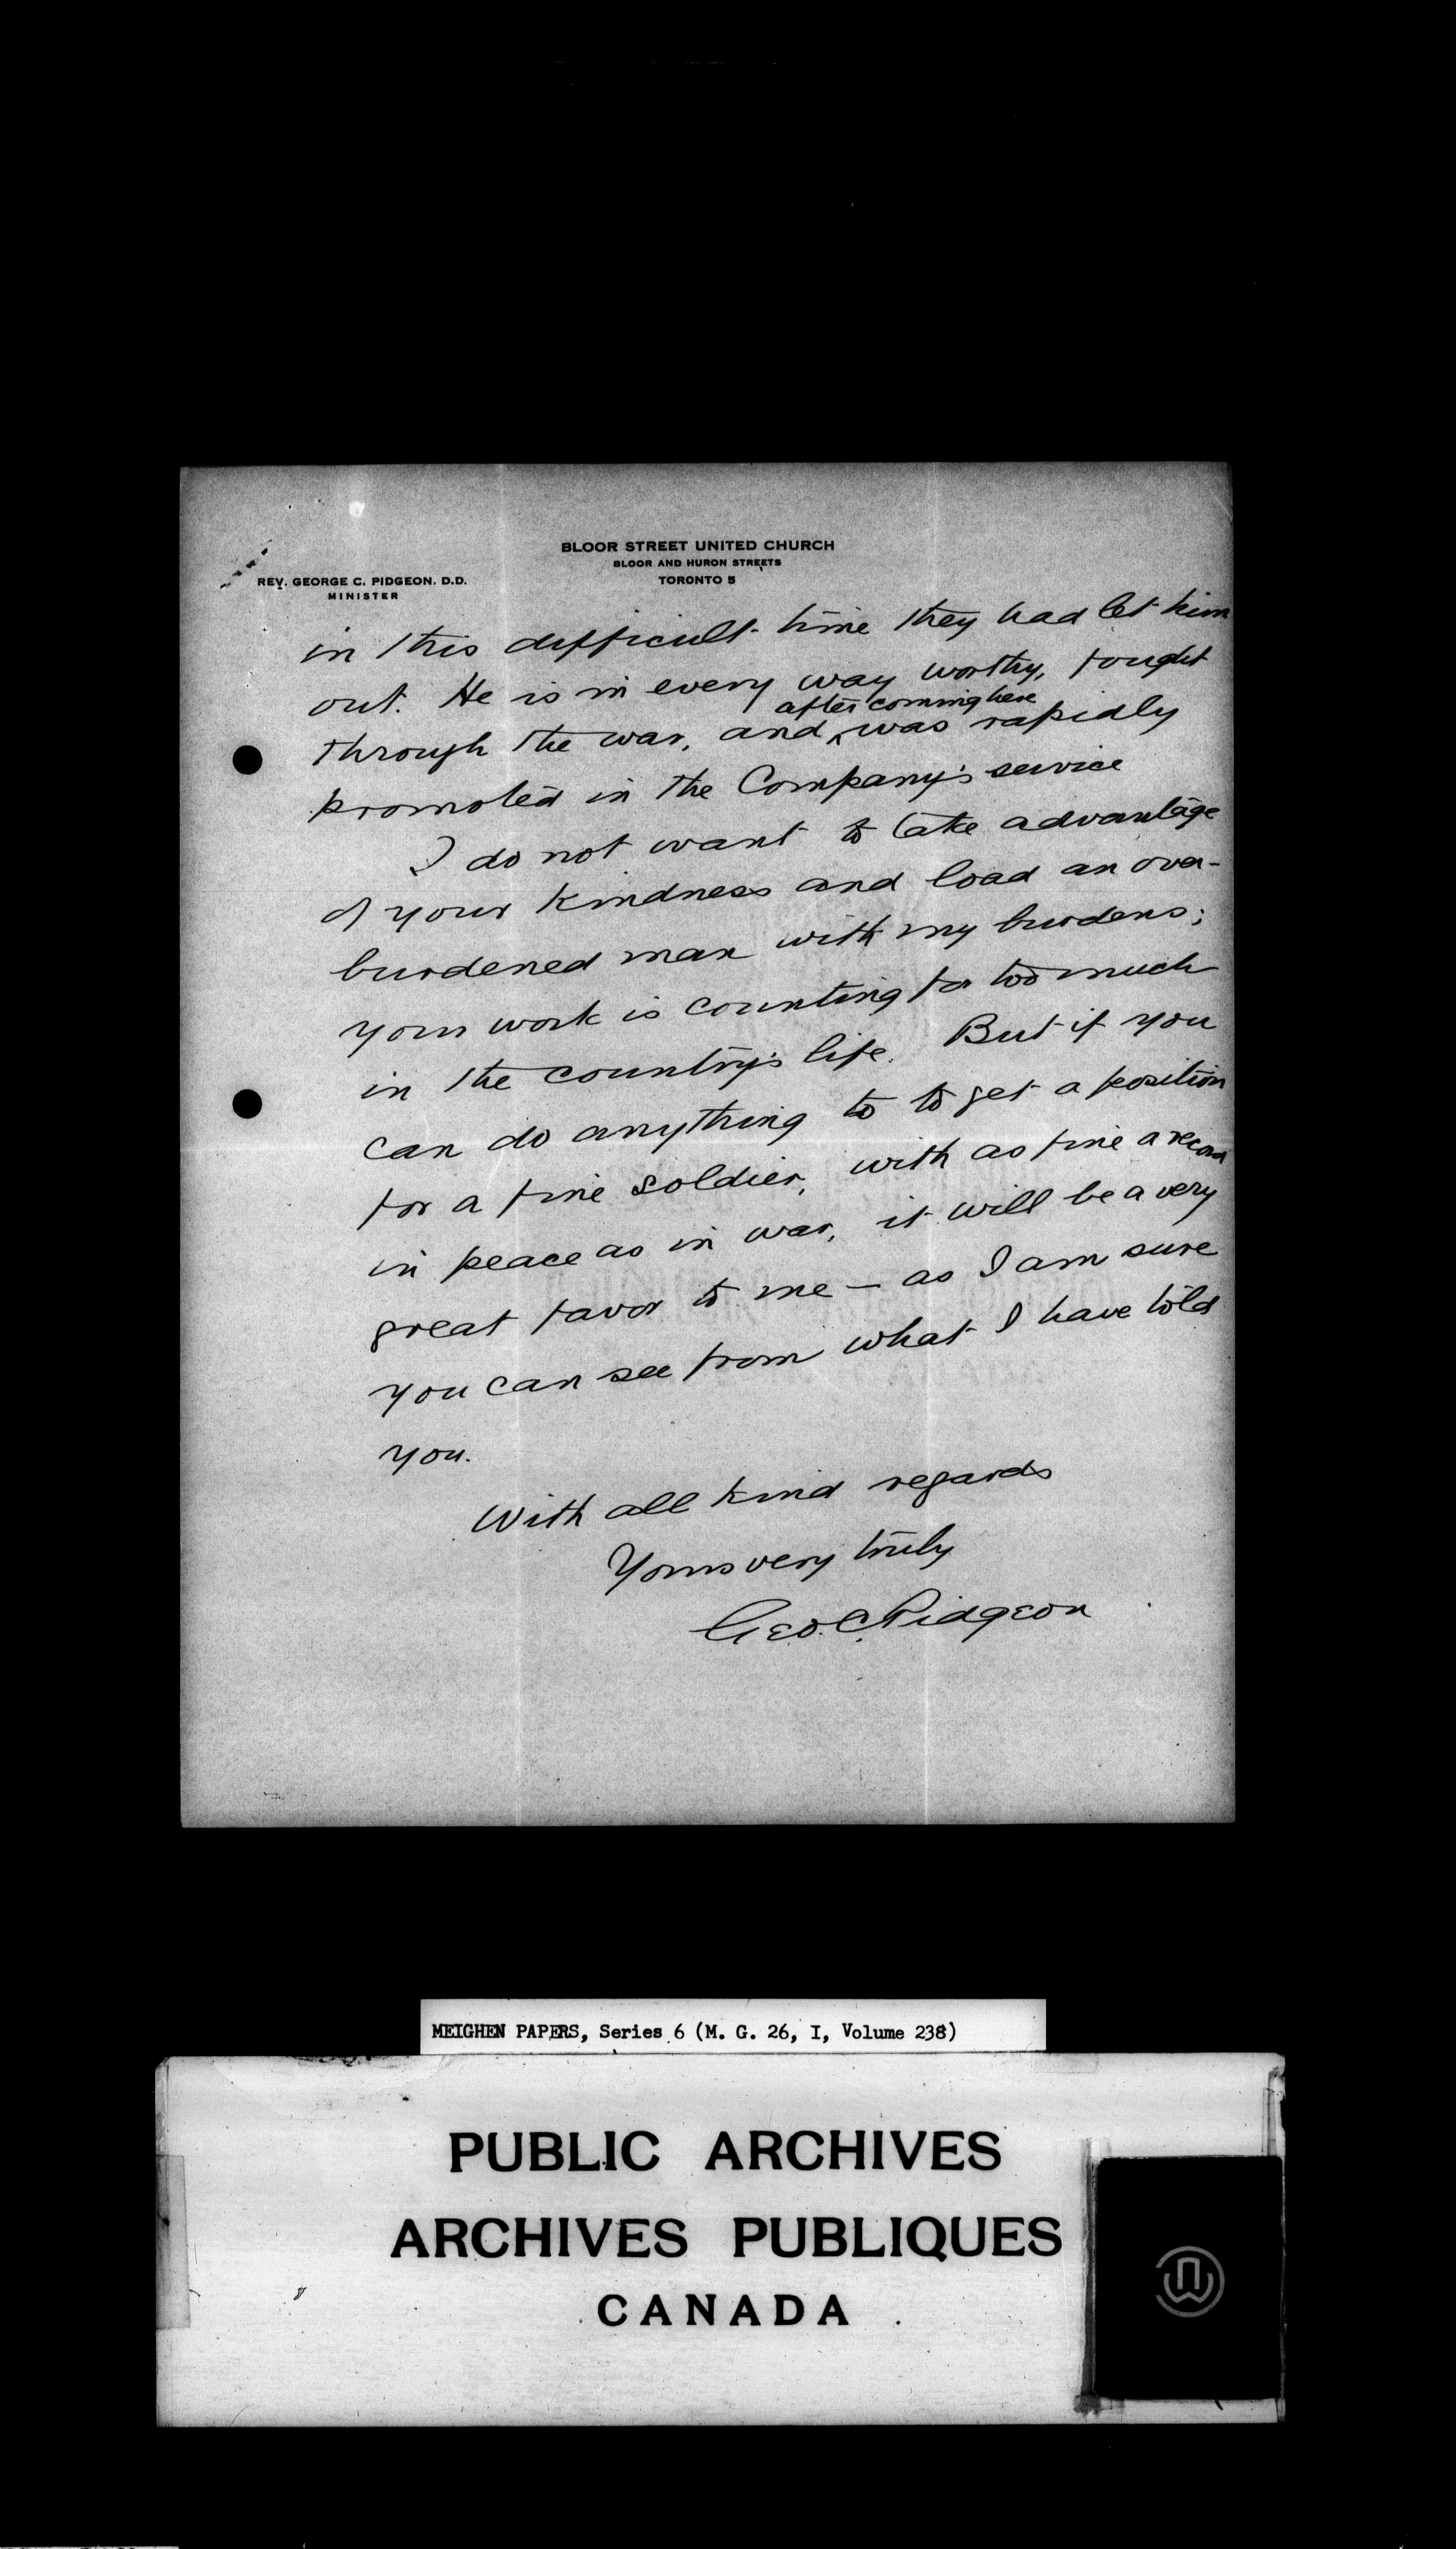 BLOOR STREET UNITED CHURCH
BLOOR AND HURON STREETS
TORONTO 5
REV. GEORGE C. PIDGEON, D.D.
MINISTER
in this difficult time they had let him
out. He is in every way worthy, fought
after coming here
through the war, and ^ was rapidly
promoted in the Company's service
I do not want to take advantage
of your kindness and load an over-
burdened man with my burdens;
your work is counting for too much
in the country's life. But if you
can do anything to to get a position
for a fine soldier, with as fine a record
in peace as in war, it will be a very
great favor to me — as I am sure
you can see from what I have told
you.
With all kind regards
Yours very truly
Geo. C. Pidgeon
MEIGHEN PAPERS, Series 6 (M. G. 26, I, Volume 238)
PUBLIC ARCHIVES
ARCHIVES PUBLIQUES
CANADA